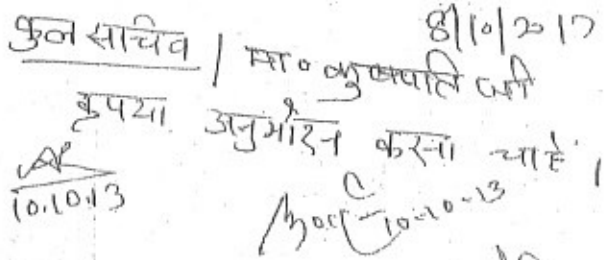 8/10/2013
कुल सचिव / मा० कुलपति जी
कृपया अनुमोदन करना चाहें ।
10.10.13
10-10-13